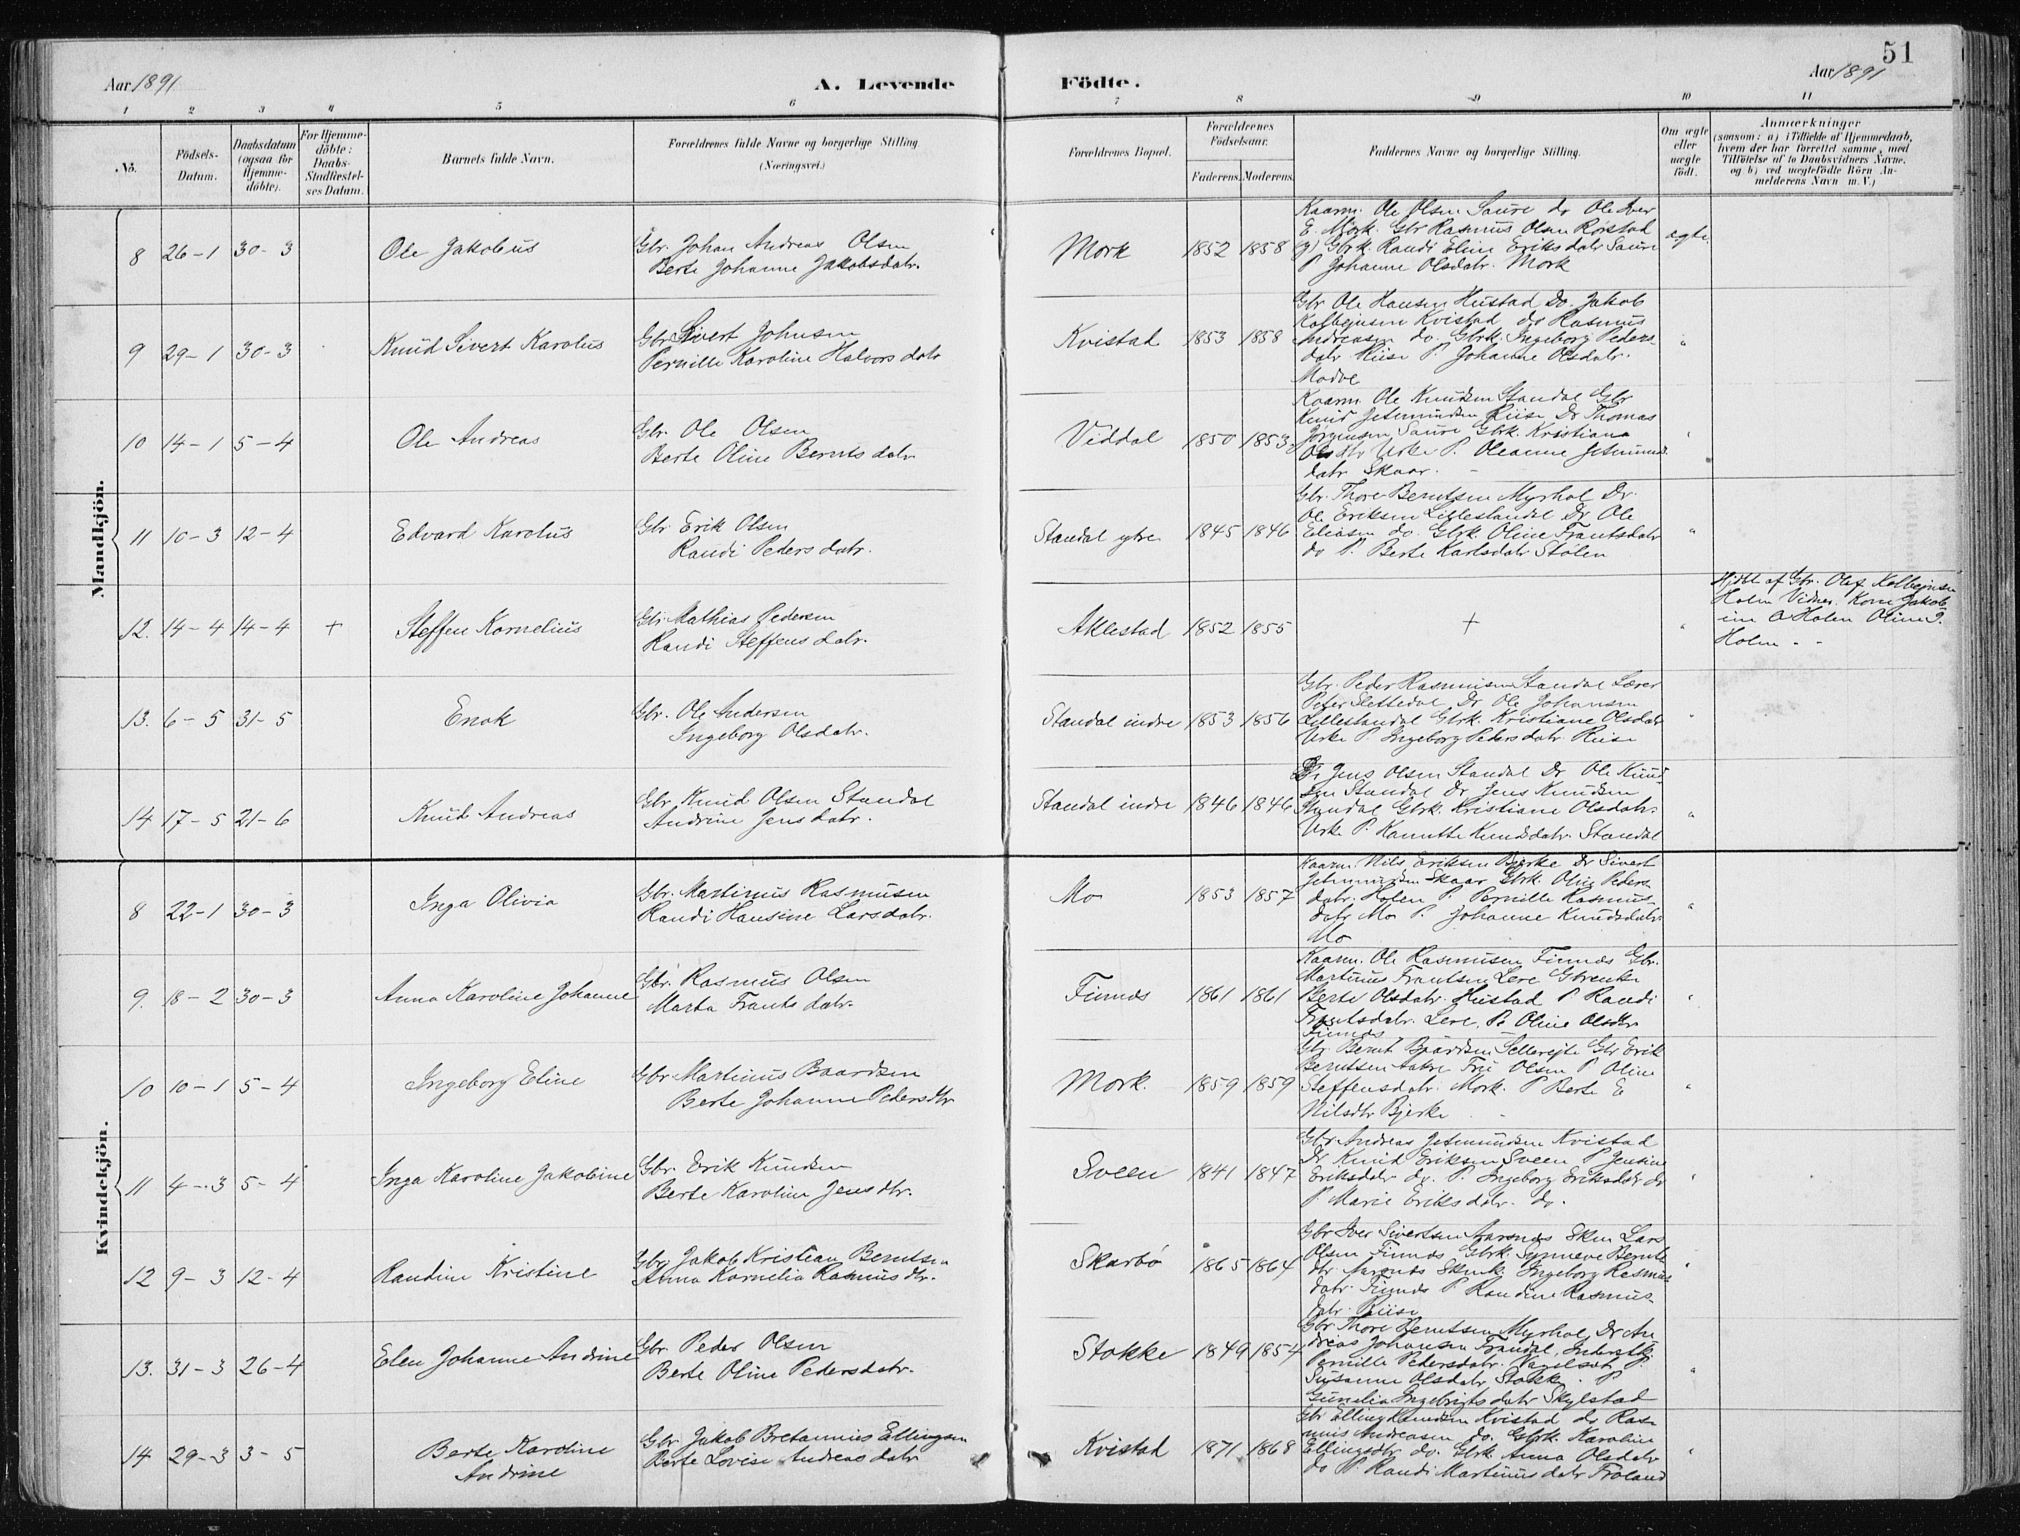 51
Aar 1891
A. Levende
Födte.
Aar 1891
1 2 3 4 5 6 7 8 9 10 11
No.
Födsels-
Datum.
Daabsdatum
(ogsaa for
Hjemme-
döbte).
For Hjemme-
döbte:
Daabs-
Stadfæstel-
ses Datum.
Barnets fulde Navn.
Forældrenes fulde Navne og borgerlige Stilling
(Næringsvei.)
Forældrenes Bopæl.
Forældrenes
Födselsaar.
Faderens. Moderens.
Faddernes Navne og borgerlige Stilling.
Om ægte
eller
uægte
födt.
Anmærkninger
(saasom: a) i Tilfælde af Hjemmedaab,
hvem der har forrettet samme, med
Tilföielse af to Daabsvidners Navne,
og b) ved uægtefödte Börn An-
melderens Navn m. V.)
Mandkjön.
8 26-1 30-3
Ole Jakobus
Gbr. Johan Andreas Olsen
Berte Johanne Jakobsdatr.
Mork 1852 1858
Kaarm. Ole Olsen Saure do Ole Iver
E. Mork. Gbr Rasmus Olsen Rørstad
Gbrk Randi Eline Eriksdatr Saure
P Johanne Olsdatr. Mork
ægte
9 29-1 30-3
Knud Sivert Karolus
Gbr. Sivert Johnsen
Pernille Karoline Halvorsdatr
Kvistad 1853 1858
Gbr Ole Hansen Hustad Do. Jakob
Kolbejnsen Kvistad do Rasmus
Andreasen do. Gbrk. Ingeborg Peders-
datr Riise P. Johanne Olsdatr.
"
10 14-1 5-4
Ole Andreas
Gbr. Ole Olsen
Berte Oline Berntsdatr
Viddal 1850 1853
Kaarm. Ole Knudsen Standal Gbr
Knud Jetmundsen Riise Do Thomas
Jørgensen Saure Gbrk. Kristiane
Olsdtr Urke P. Oleanne Jetmunds
datr Skaar.
"
11 10-3 12-4
Edvard Karolus
Gbr Erik Olsen
Randi Pedersdatr.
Standal ytre 1845 1846
Gbr. Thore Berntsen Myrhol Do.
Ole Eriksen Lillestandal Do Ole
Eliasen do. Gbrk Oline Frantsdatr
do P. Berte Karlsdatr Stølen
"
12. 14-4 14-4 +
Steffen Kornelius
Gbr Mathias Pedersen
Randi Steffensdatr.
Aklestad 1852 1855
+
"
Hjdbt af Gbr. Olaf Kolbejnsen
Holen Vidner. Kone Jakob-
ine O Holen Oline P.
Holen
13. 6-5 31-5
Enok
Gbr. Ole Andersen
Ingeborg Olsdatr.
Standal indre 1853 1856
Gbr. Peder Rasmusen Standal Lærer
Peter Slettedal Do Ole Johansen
Lillestandal Gbrk. Kristiane Olsdatr
Urke P. Ingeborg Pedersdatr Riise
"
14 17-5 21-6
Knud Andreas
Gbr. Knud Olsen Standal
Andrine Jensdatr.
Standal indre 1846 1846
Gbr Jens Olsen Standal Do Ole Knud-
sen Standal Do Jens Knudsen
Standal Gbrk. Kristiane Olsdatr.
Urke P. Kanutte Knudsdatr. Standal
"
Kvindekjön.
8 22-1 30-3
Inga Olivia
Gbr. Martinus Rasmusen
Randi Hansine Larsdatr.
Mo 1853 1857
Kaarm. Nils Eriksen Bjerke Do Sivert
Jetmundsen Skaar Gbrk. Oline Peders-
datr. Holen P. Pernille Rasmus-
datr Mo P. Johanne Knudsdatr.
Mo
"
9. 18-2 30-3
Anna Karoline Johanne
Gbr. Rasmus Olsen
Marta Frantsdatr.
Finnes 1861 1861
Kaarm. Ole Rasmusen Finnes Gbr.
Martinus Frantsen Lere Gbrenke
Berte Olsdatr. Hustad P. Randi
Frantsdatr. Lere. P. Oline Olsdtr
Finnes
"
10 10-1 5-4
Ingeborg Eline
Gbr Martinus Baardsen
Berte Johanne Pedersdtr
Mork. 1859 1859
Gbr Bernt Baardsen Gbr Erik
Berntsen Olsen P Oline
Steffensdatr. Mork. P Berte E
Nilsdtr Bjerke
"
11 4-3 5-4
Inga Karoline Jakobine
Gbr. Erik Knudsen
Berte Karoline Jensdtr.
Sveen 1841 1847
Gbr Andreas Jetmundsen Kvistad
Do Knud Eriksen Sveen P Jensine
Eriksdatr do. P. Ingeborg Eriksdtr do
P. Marie Eriksdatr. do.
"
12 9-3 12-4
Randine Kristine
Gbr. Jakob Kristian Berntsen
Anna Kornelia Rasmusdtr.
Skarbø 1865 1864
Gbr Iver Sivertsen Aarsnes Lars
Olsen Finnes Gbrk. Synneve Bernts
dtr. Aarsnes Ingeborg Rasmus
datr. Finnes P. Randine Rasmus-
datr. Riise
"
13. 31-3 26-4
Elen Johanne Andrine
Gbr. Peder Olsen
Berte Oline Pedersdatr.
Stokke 1849 1854
Gbr Thore Berntsen Myrhol Do An
dreas Johansen Frandal,
Pernille Pedersdatr. P.
Susanne Olsdatr Stokke. P
Ingebrigtsdatr Skylstad
"
14 29-3 3-5
Berte Karoline
Andrine
Gbr. Jakob Bretannius Ellingsen
Berte Lovise Andreasdatr
Kvistad 1871 1868
Gbr Elling Knudsen Kvistad do Ras-
mus Andreasen do. Gbrk. Karoline
Ellingsdtr do. Gbrk Anna Olsdatr
do P. Randi Martinusdatr Froland
"